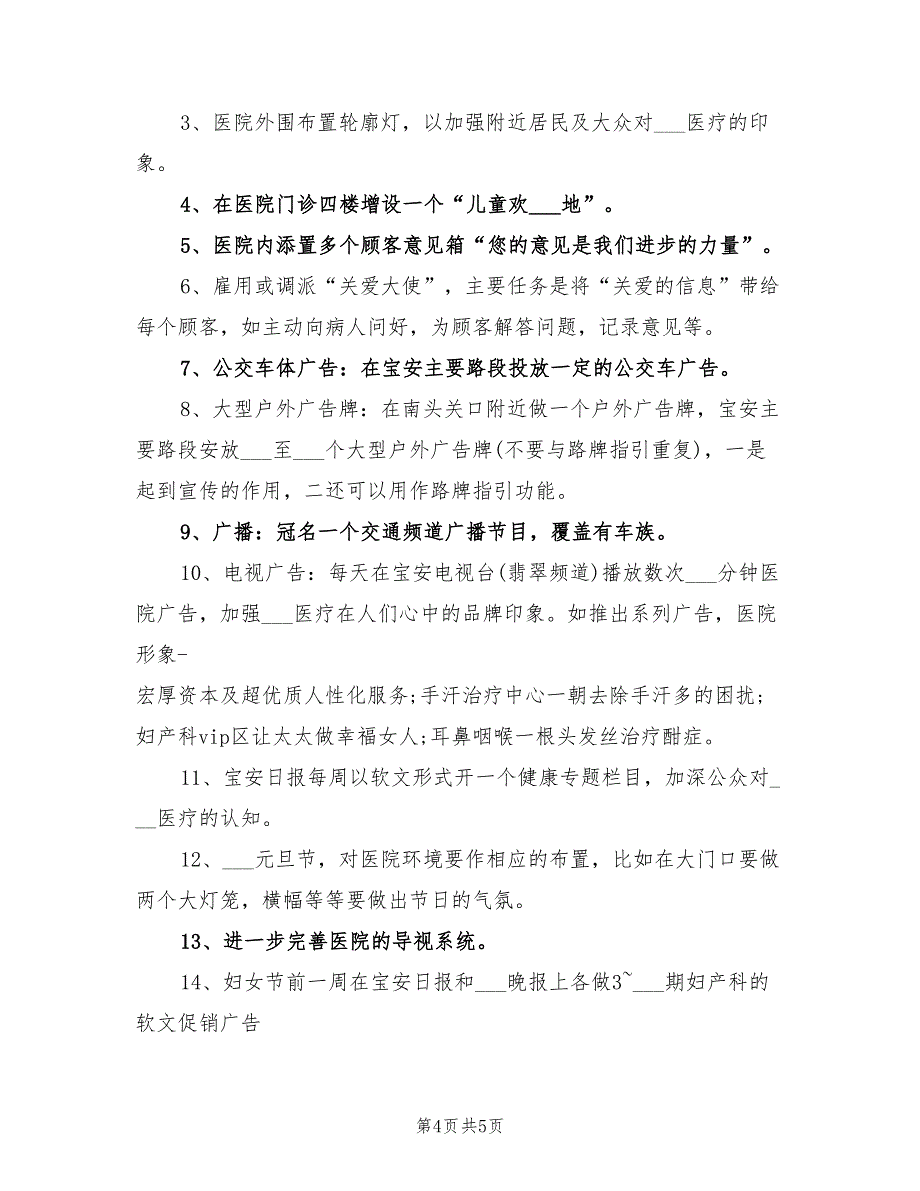 3、医院外围布置轮廓灯，以加强附近居民及大众对___医疗的印
象。
4、在医院门诊四楼增设一个“儿童欢___地”。
5、医院内添置多个顾客意见箱“您的意见是我们进步的力量”。
6、雇用或调派“关爱大使”，主要任务是将“关爱的信息”带给
每个顾客，如主动向病人问好，为顾客解答问题，记录意见等。
7、公交车体广告：在宝安主要路段投放一定的公交车广告。
8、大型户外广告牌：在南头关口附近做一个户外广告牌，宝安主
要路段安放___至___个大型户外广告牌(不要与路牌指引重复)，一是
起到宣传的作用，二还可以用作路牌指引功能。
9、广播：冠名一个交通频道广播节目，覆盖有车族。
10、电视广告：每天在宝安电视台(翡翠频道)播放数次___分钟医
院广告，加强___医疗在人们心中的品牌印象。如推出系列广告，医院
形象-
宏厚资本及超优质人性化服务;手汗治疗中心一朝去除手汗多的困扰;
妇产科vip区让太太做幸福女人;耳鼻咽喉一根头发丝治疗酣症。
11、宝安日报每周以软文形式开一个健康专题栏目，加深公众对_
__医疗的认知。
12、___元旦节，对医院环境要作相应的布置，比如在大门口要做
两个大灯笼，横幅等等要做出节日的气氛。
13、进一步完善医院的导视系统。
14、妇女节前一周在宝安日报和___晚报上各做3~___期妇产科的
软文促销广告
第4页共5页